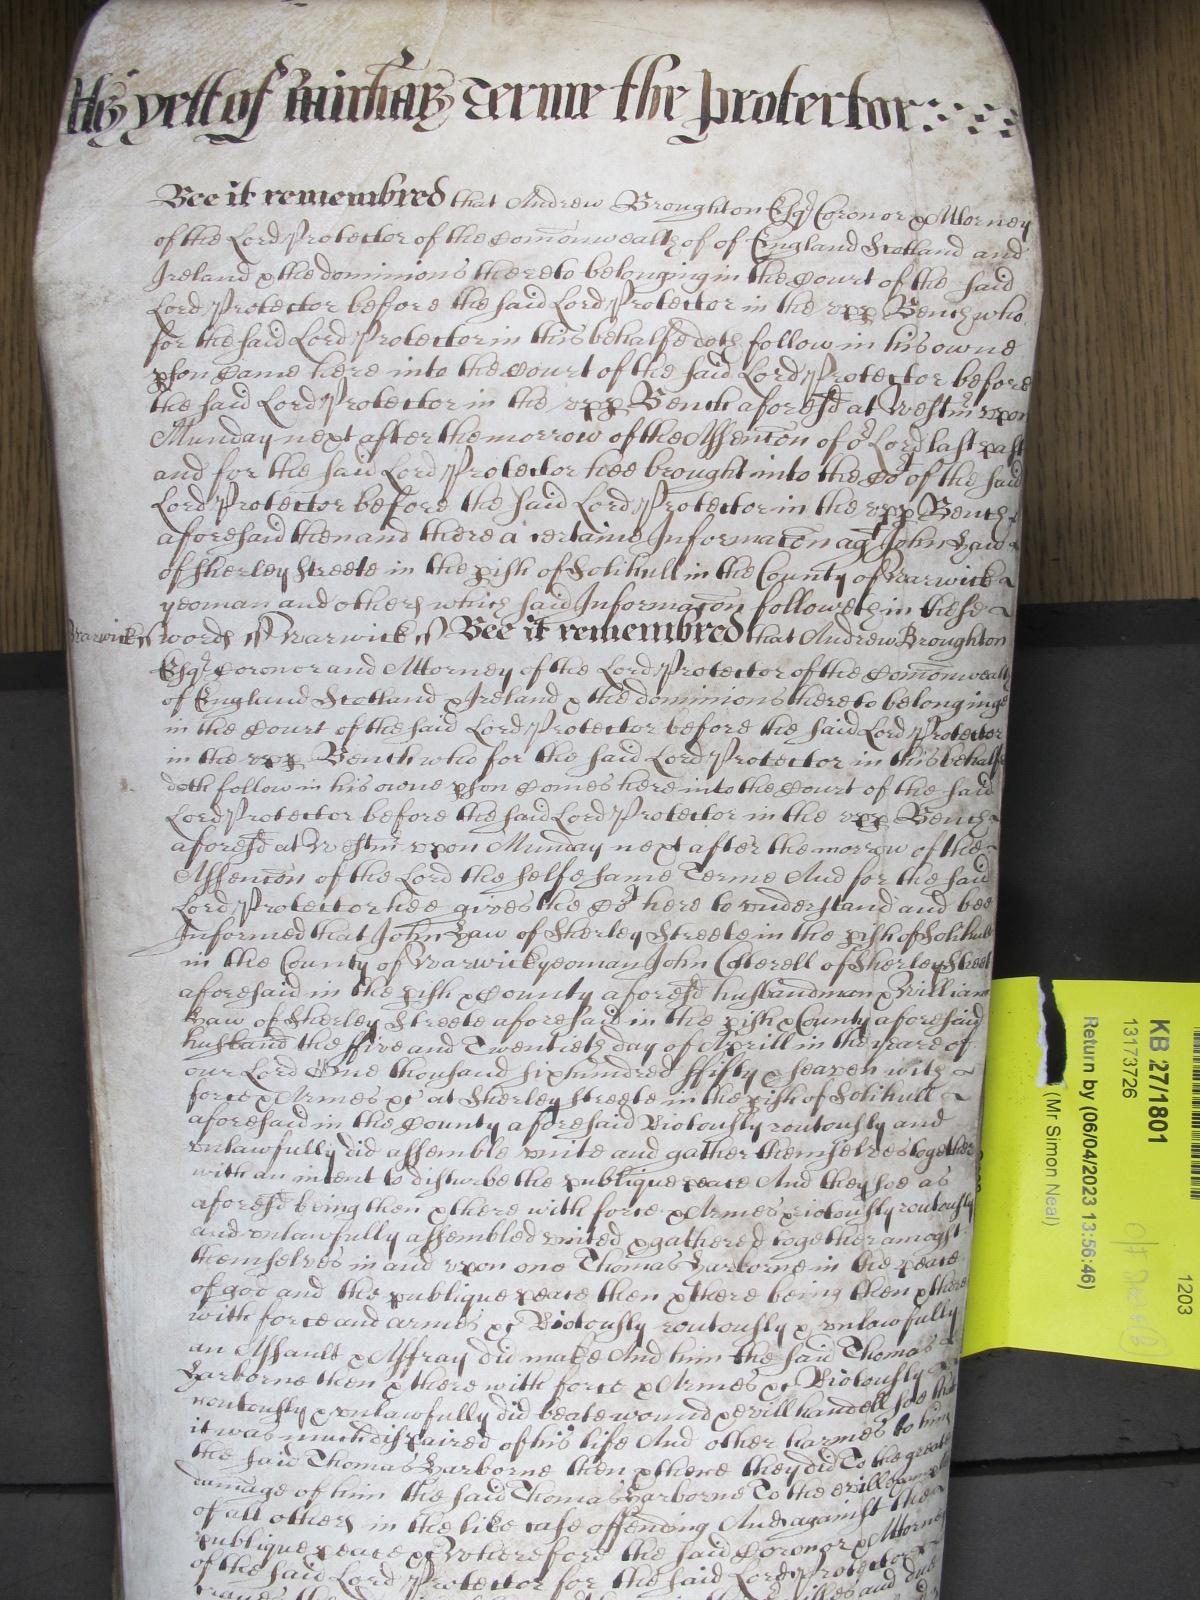 As yett of Michās Terme the Protector
Bee it remembred that Andrew Broughton Esqr Coronor & Attorney
of the Lord Protector of the Comonwealth of of England Scotland and
Ireland & the dominions thereto belonging in the Court of the said
Lord Protector before the said Lord Protector in the upp Bench who
for the said Lord Protector in this behalfe doth follow in his owne
pson Came here into the Court of the said Lord Protector before
the said Lord Protector in the upp Bench aforesd at Westmr upon
Munday next after the morrow of the Assencōn of or Lord last past
and for the said Lord Protector hee brought into the Cort of the said
Lord Protector before the said Lord Protector in the upp Bench
aforesaid then and there a certaine Informacōn agt John
of Sherley Streete in the pish of Solihull in the County of Warwick
yeoman and others which said Informacōn followeth in these
Warwick ss words ss Warwick ss Bee it remembred that Andrew Broughton
Esqr Coronor and Attorney of the Lord Protector of the Comonwealth
of England Scotland & Ireland & the dominions thereto belonginge
in the Court of the said Lord Protector before the said Lord Protector
in the upp Bench who for the said Lord Protector in this behalfe
doth follow in his owne pson Comes here into the Court of the said
Lord Protector before the said Lord Protector in the upp Bench
aforesd at Westmr upon Munday next after the morrow of the
Assencōn of the Lord the selfe same Terme And for the said
Lord Protector hee gives the Cort here to understand and bee
Informed that John of Sherley Streete in the pish of Solihull
in the County of Warwick yeoman John Cotterell of Sherley Street
aforesaid in the pish & County aforesd husbandman & William
of Sherley Streete aforesaid in the pish & County aforesaid
husband the ffive and Twentieth day of Aprill in the yeare of
our Lord One thousand six hundred ffifty & seaven with
force & Armes &c at Sherley Streete in the pish of Solihull
aforesaid in the County aforesaid Riotously routously and
unlawfully did assemble unite and gather themselves together
with an intent to disturbe the publique peace And they soe as
aforesd being then & there with force & Armes &c riotously routously
and unlawfully assembled united & gathered together amogst
themselves in and upon one Thomas Harborne in the peace
of god and the publique peace then & there being then & there
with force and armes &c Riotously routously & unlawfully
an Assault & Affray did make And him the said Thomas
Harborne then & there with force & Armes &c Riotously
routously & unlawfully did beate wound & evill handell soe that
it was much dispaired of his life And other harmes to him
the said Thomas Harborne then & there they did To the great
damage of him the said Thomas Harborne To the evill example
of all others in the like case offending And against the
publique peace &c Wherefore the said Coronor & Attorney
of the said Lord Protector for the said Lord Protector
KB 27/1801
13173726
Return by (06/04/2023 13:56:46)
(Mr Simon Neal)
1203